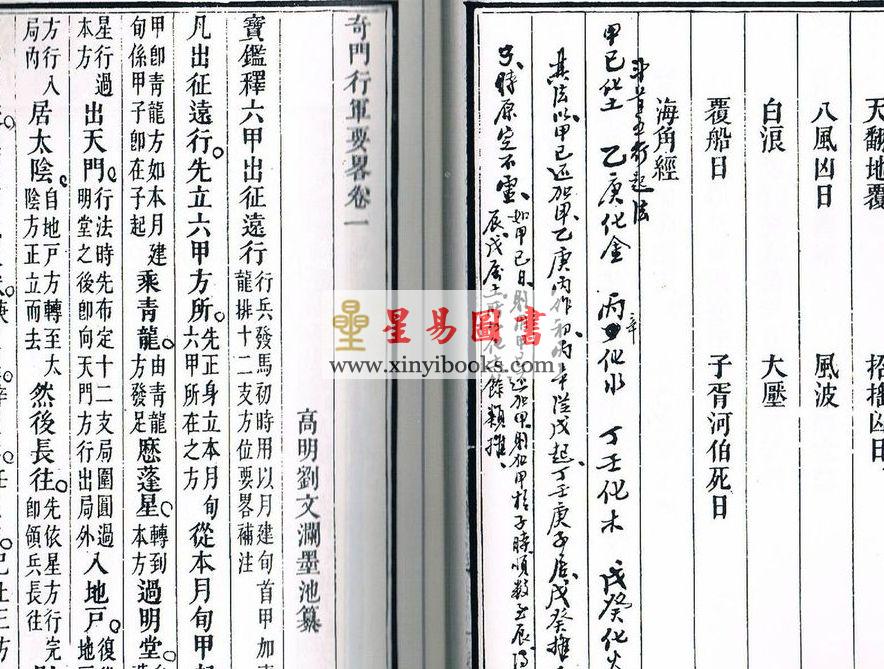 天翻地覆 招搖凶日
八風凶日 風波
白浪 大壓
覆船日 子胥河伯死日
海角經
斗首五行起法
甲己化土 乙庚化金 丙辛化水 丁壬化木 戊癸化火
其法以甲己还加甲乙庚丙作初丙辛從戊起丁壬庚子居戊癸推
只時原定不靈
如甲己日
还加甲則加甲於子時順數至辰
辰戊屬土
餘類推
奇門行軍要畧卷一
高明劉文瀾墨池纂
寶鑑釋六甲出征遠行
行兵發馬初時用以月建旬首甲加
龍排十二支方位要畧補注
凡出征遠行。先立六甲方所。
先正身立本月旬
六甲所在之方
從本月旬甲
甲卽青龍方如本月建
旬係甲子卽在子起
乘青龍。
由青龍
方發足
歷蓬星。
轉到
本方
過明堂。
星行過
本方
出天門。
行法時先布定十二支局圍圓過
明堂之後卽向天門方行出局外
入地戶。
復
地
方行入
局內
居太陰。
自地戶方轉至太
陰方正立而去
然後長往。
先依星方行完
卽領兵長往
星易圖書
www.xinyibooks.com